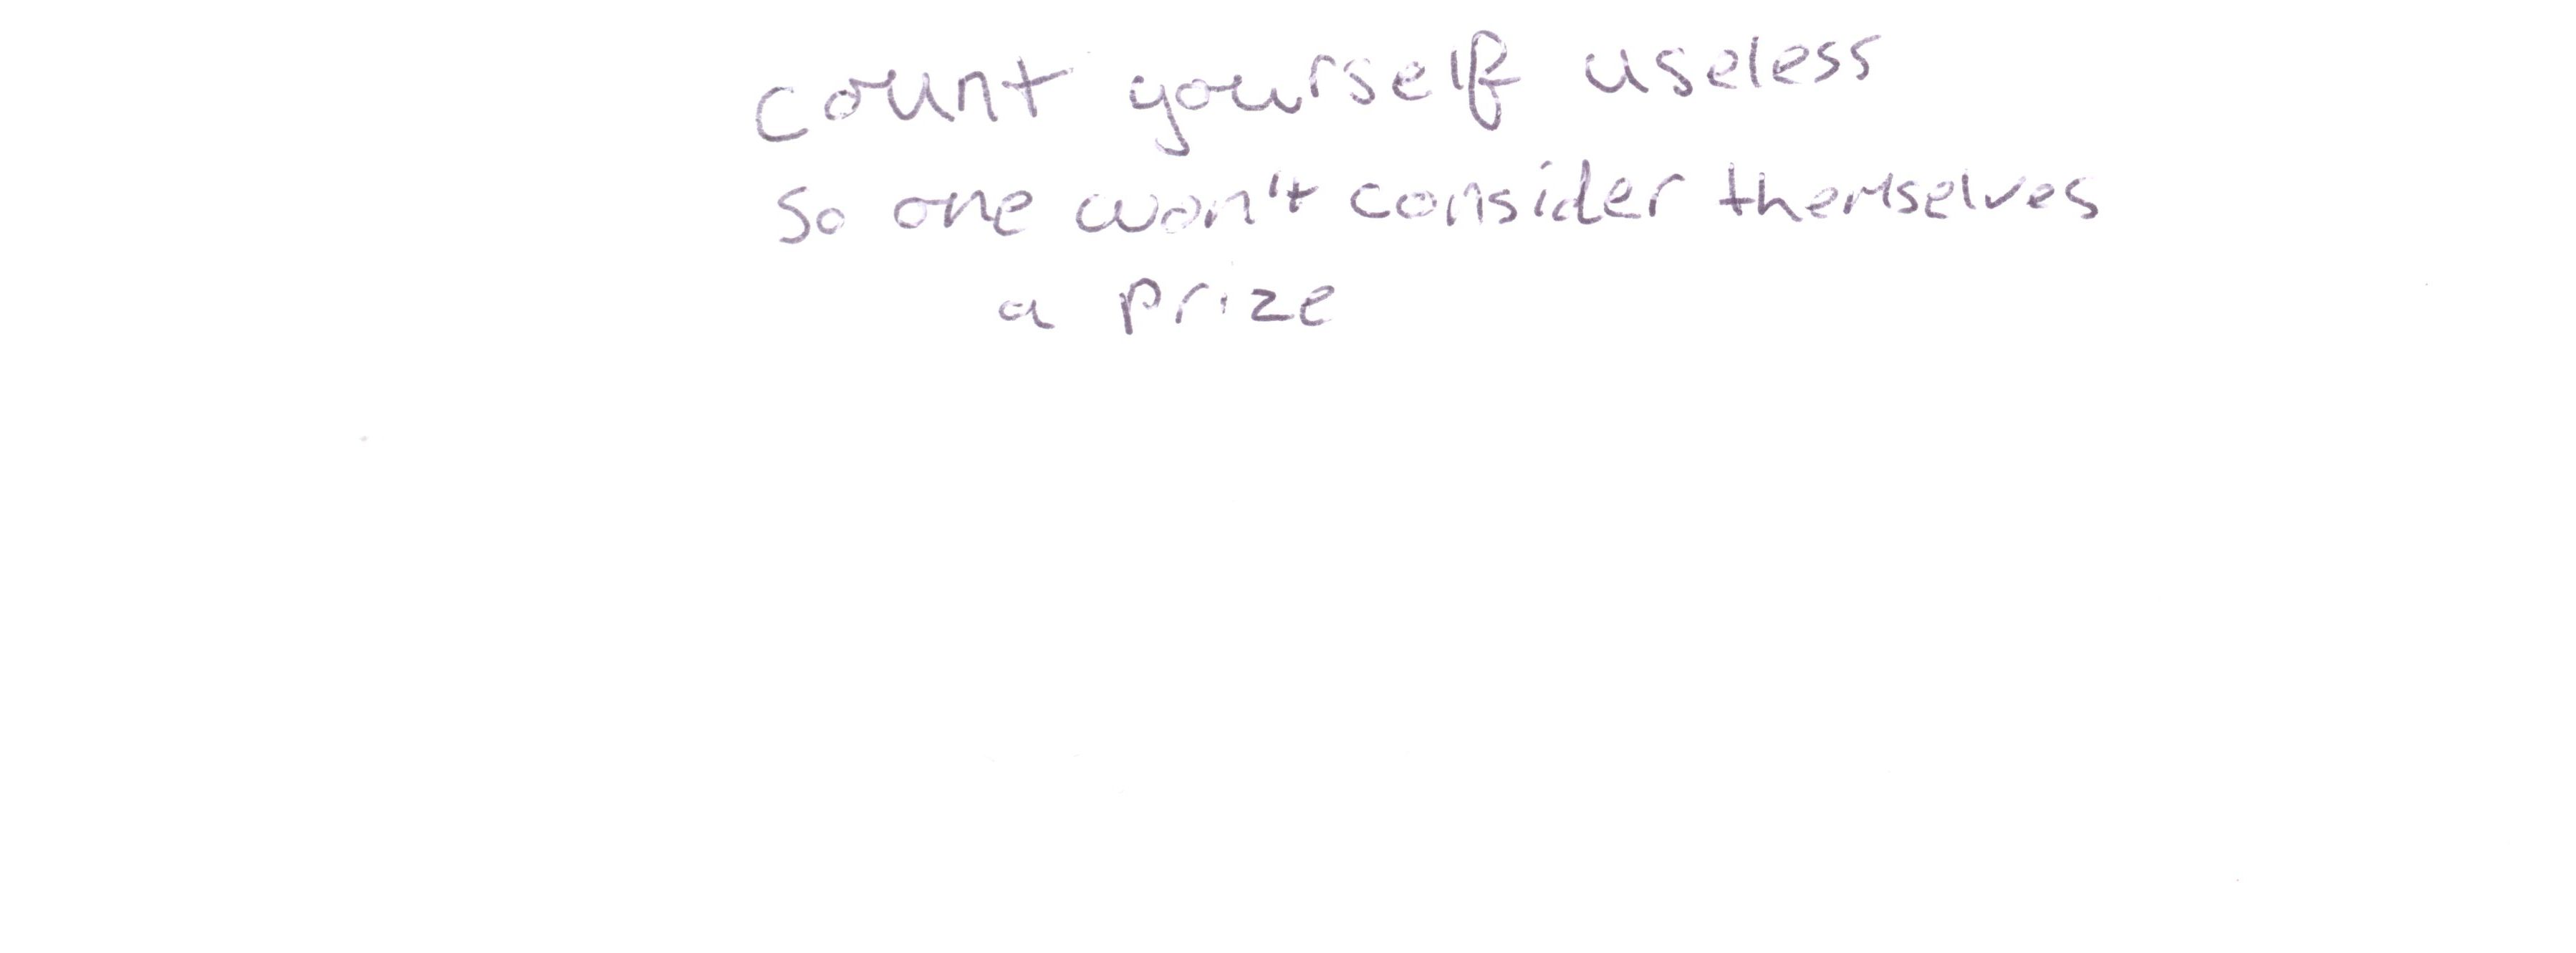 count yourself useless
so one won't consider themselves
a prize